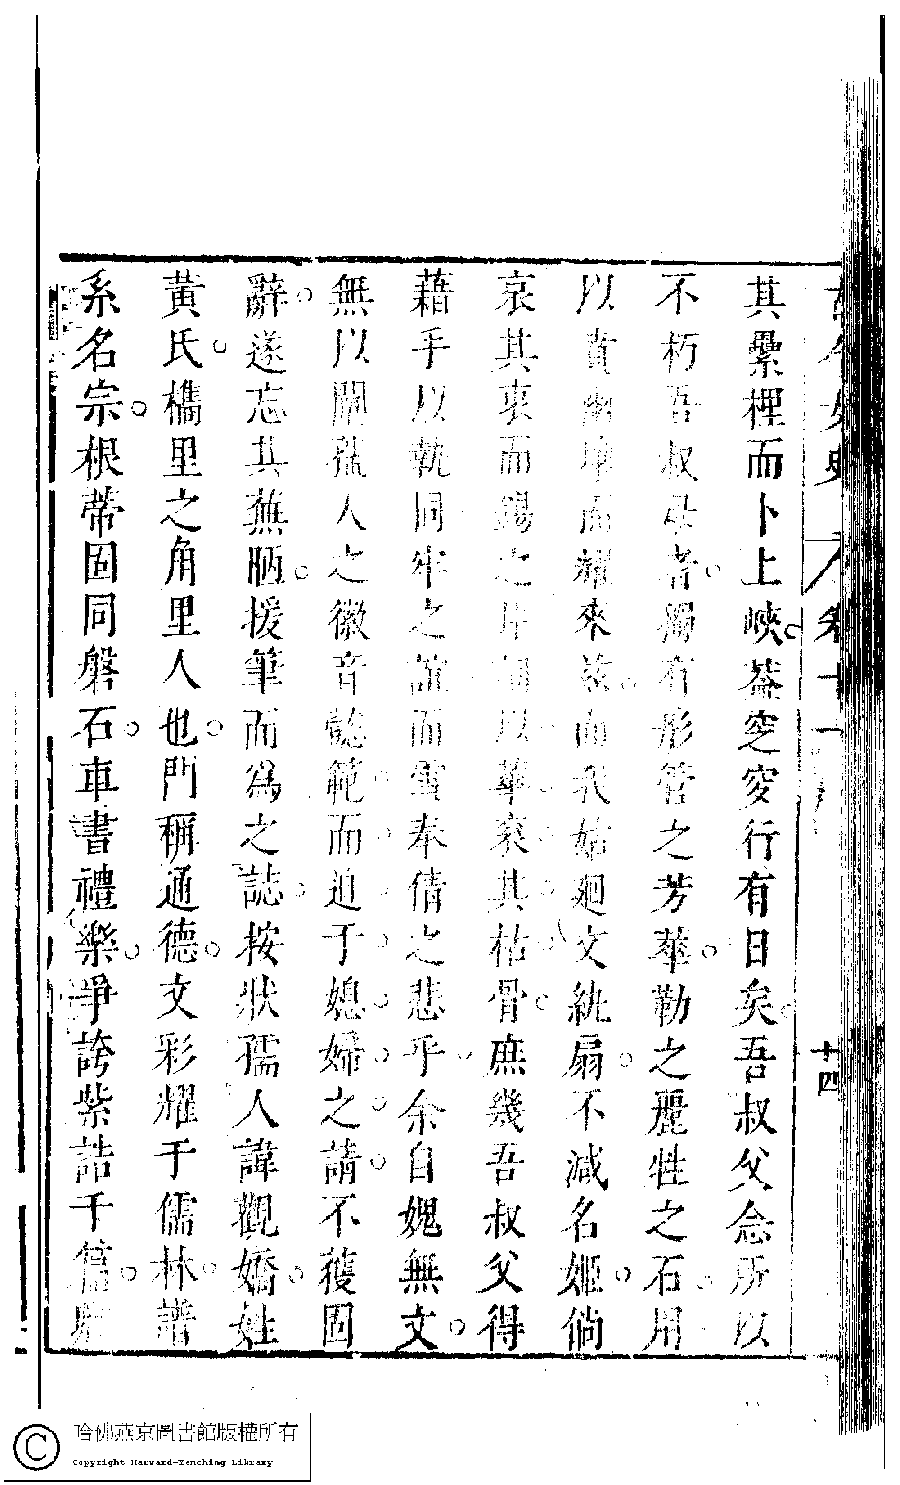 古今女史 卷十一 十四
其櫐梩而卜上峽葢窆穸行有日矣吾叔父念所以
不朽吾叔母者獨有彤管之芳華勒之麗牲之石用
以賁幽埁而耀來玆而我姑廻文紈扇不減名姬倘
哀其衷而錫之片詞以華袞其枯骨庶幾吾叔父得
藉乎以執同牢之誼而雪奉倩之悲乎余自媿無文
無以闡孺人之徽音懿範而迫于媳婦之請不獲固
辭遂忘其蕪陋援筆而爲之誌按狀孺人諱觀嬌姓
黃氏檇里之角里人也門稱通德文彩耀于儒林譜
系名宗根蔕固同磐石車書禮樂爭誇紫誥千
哈佛燕京圖書館版權所有
Copyright Harvard-Yenching Library